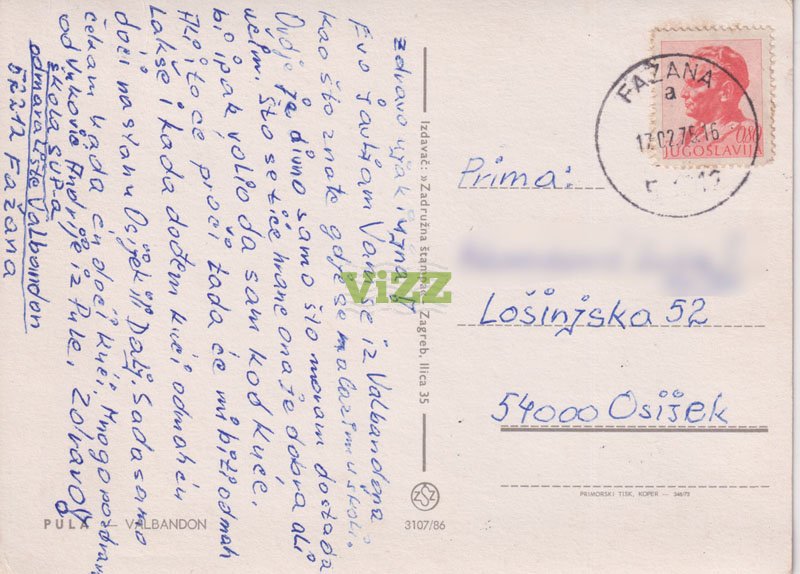 zdravo ujak i ujna
Evo javljam Vam se iz Valbandona
kao što znate gdje se nalazim u školi.
Ovdje je divno samo što moram dostada
učim. Što se tiće hrane ona je dobra ali
bi ipak volio da sam kod kuće.
Ali i to će proći tada će mi biti odmah
Lakše i kada dođem kući odmah ću
doći na stan u Osijek ili Dalj. Sada samo
čekam kada ću doći kući. Mnogo pozdrava
od Andrije iz Pule, Zdravo
škola SUP-a
odmaralište Valbandon
52212 Fažana
PULA — VALBANDON
Izdavač: »Zadružna štampa« — Zagreb, Ilica 35
3107/86
ZSZ
vizz
FAŽANA
a
17.02.75.16
0,80
JUGOSLAVIJA
Prima:
Lošinjska 52
54000 Osijek
PRIMORSKI TISK, KOPER — 346/73